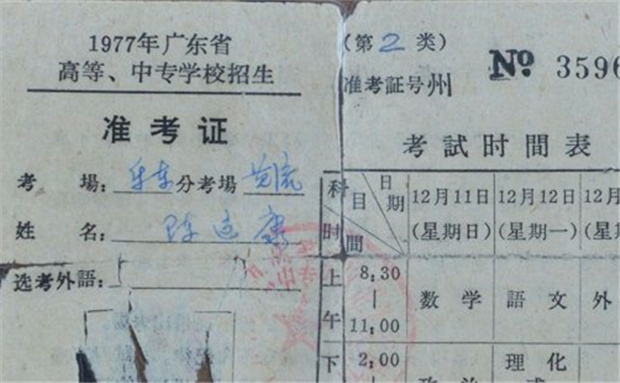 1977年广东省
高等、中专学校招生
准考证
考場：乐东分考場黄流
姓名：陈运康
选考外語：
（第2类）
准考証号州 № 3596
考試时間表
科目 日期 時間
12月11日 12月12日 12月
（星期日） （星期一） （星
上午 8,30—11,00 数学 語文 外
下 2,00 理化